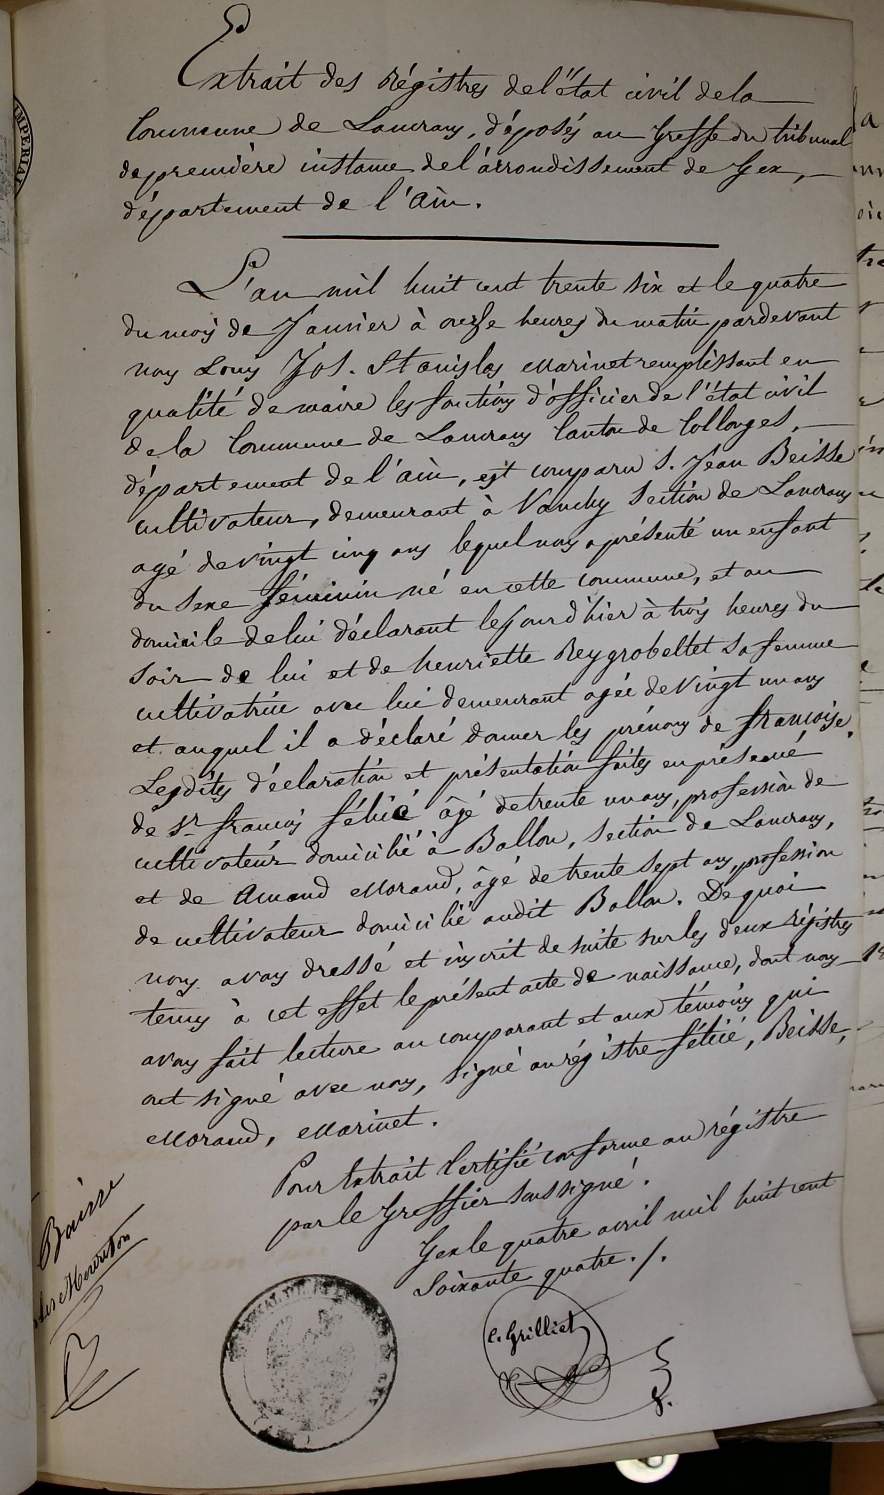 Extrait des Régistres de l'état civil de la
Commune de Lancrans, déposés au Greffe du tribunal
de première instance de l'arrondissement de Gex,
département de l'Ain.
L'an mil huit cent trente six et le quatre
du mois de Janvier à onze heures du matin pardevant
nous Louis Jos. Stanislas Marinet remplissant en
qualité de maire les fonctions d'officier de l'état civil
de la Commune de Lancrans Canton de Collonges,
département de l'ain, est comparu S. Jean Beisse
cultivateur, demeurant à Vanchy Section de Lancrans
agé de vingt cinq ans lequel nous a présenté un enfant
du sexe féminin né en cette commune, et au
domicile de lui déclarant le jour d'hier à trois heures du
soir de lui et de henriette Reygrobellet sa femme
cultivatrice avec lui demeurant agée de vingt un ans
et auquel il a déclaré donner les prénoms de françoise.
Lesdites déclaration et présentation faites en présence
de Sr. françois félicé âgé de trente un ans, profession de
cultivateur domicilié à Ballon, section de Lancrans,
et de Amand Morand, âgé de trente sept ans, profession
de cultivateur domicilié audit Ballon. De quoi
nous avons dressé et inscrit de suite sur les deux régistres
tenus à cet effet le présent acte de naissance, dont nous
avons fait lecture au comparant et aux témoins qui
ont signé avec nous, signé au régistre félicé, Beisse,
Morand, Marinet.
Pour Extrait Certifié conforme au régistre
par le Greffier soussigné.
Gex le quatre avril mil huit cent
Soixante quatre./.
Baisse
C. Grilliet
IMPERIAL